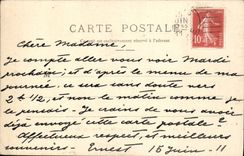 CARTE POSTALE
réservé à l'adresse
JUIN
10
Chère Madame,
Je compte aller vous voir Mardi
prochain; et d'après le menu de ma
journée, ce sera sans doute vers
2 à 12, et non le matin comme je
le . Je crains de vous avoir
déjà envoyé cette carte postale
Affectueux respect, et meilleurs
souvenirs - Ernest 16 Juin - 11